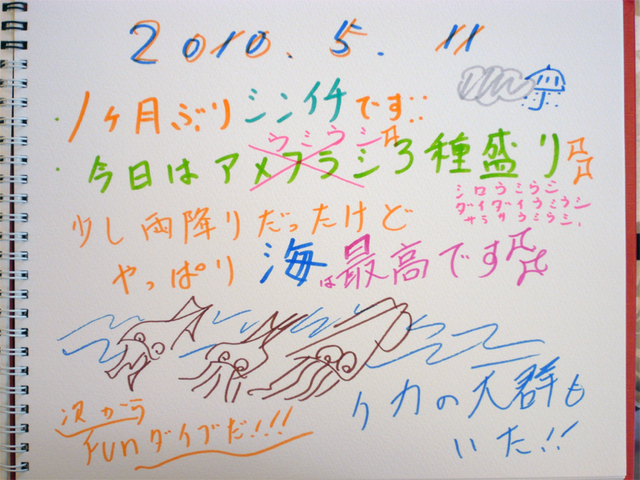 2010.5.11
1ヶ月ぶりシンイチです
ウミウシ
今日はアメフラシ3種盛り
シロウミウシ
ダイダイウミウシ
サラサウミウシ.
少し雨降りだったけど
やっぱり海は最高です
イカの大群も
いた!!
次から
FUNダイブだ!!!